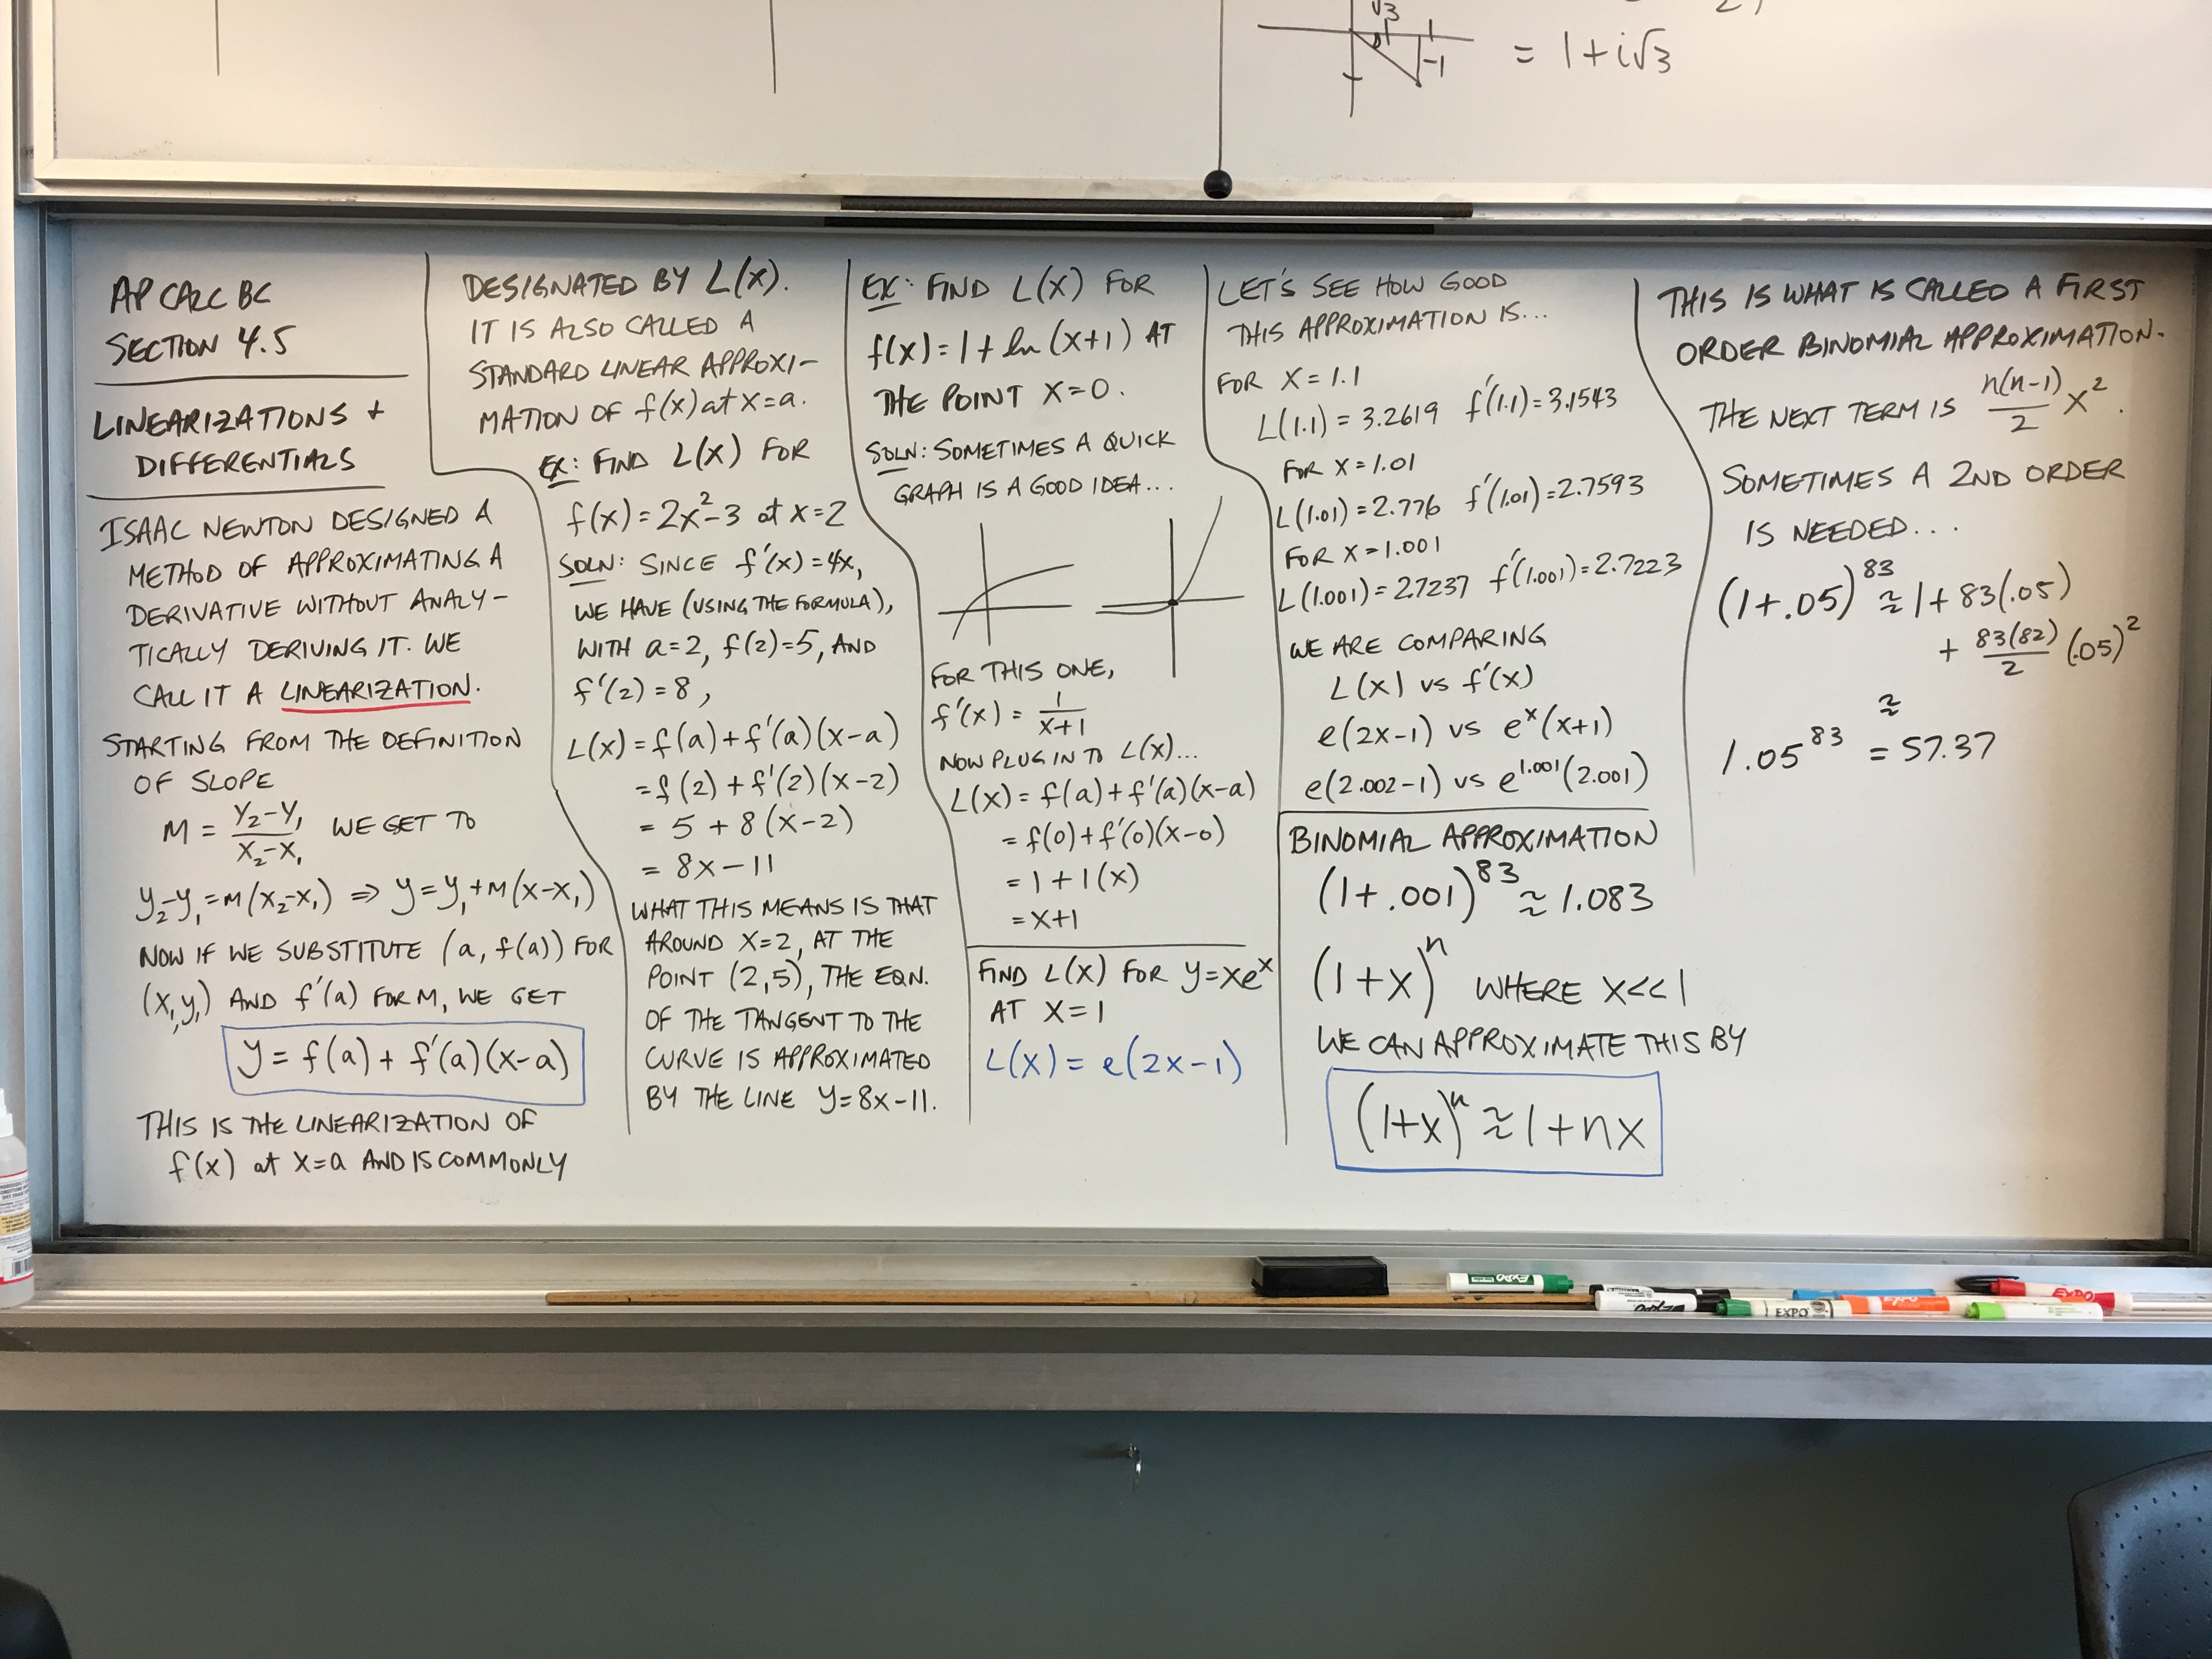 √3
-1
= 1+i√3
AP CALC BC
SECTION 4.5
LINEARIZATIONS +
DIFFERENTIALS
ISAAC NEWTON DESIGNED A
METHOD OF APPROXIMATING A
DERIVATIVE WITHOUT ANALY-
TICALLY DERIVING IT. WE
CALL IT A LINEARIZATION.
STARTING FROM THE DEFINITION
OF SLOPE
M = (y₂-y₁)/(x₂-x₁) WE GET TO
y₂-y₁=m(x₂-x₁) ⇒ y=y₁+m(x-x₁)
NOW IF WE SUBSTITUTE (a, f(a)) FOR
(x₁,y₁) AND f'(a) FOR M, WE GET
y = f(a) + f'(a)(x-a)
THIS IS THE LINEARIZATION OF
f(x) at x=a AND IS COMMONLY
DESIGNATED BY L(x).
IT IS ALSO CALLED A
STANDARD LINEAR APPROXI-
MATION OF f(x) at x=a.
EX: FIND L(x) FOR
f(x) = 2x²-3 at x=2
SOLN: SINCE f'(x) = 4x,
WE HAVE (USING THE FORMULA),
WITH a=2, f(2)=5, AND
f'(2) = 8,
L(x) = f(a) + f'(a)(x-a)
= f(2) + f'(2)(x-2)
= 5 + 8(x-2)
= 8x-11
WHAT THIS MEANS IS THAT
AROUND X=2, AT THE
POINT (2,5), THE EQN.
OF THE TANGENT TO THE
CURVE IS APPROXIMATED
BY THE LINE y=8x-11.
EX: FIND L(X) FOR
f(x) = 1+ ln(x+1) AT
THE POINT X=0.
SOLN: SOMETIMES A QUICK
GRAPH IS A GOOD IDEA...
FOR THIS ONE,
f'(x) = 1/(x+1)
NOW PLUG IN TO L(x)...
L(x) = f(a)+f'(a)(x-a)
= f(0)+f'(0)(x-0)
= 1+1(x)
= x+1
FIND L(X) FOR y=xeˣ
AT X=1
L(x) = e(2x-1)
LET'S SEE HOW GOOD
THIS APPROXIMATION IS...
FOR X=1.1
L(1.1) = 3.2619 f'(1.1) = 3.1543
FOR X=1.01
L(1.01) = 2.776 f'(1.01) = 2.7593
FOR X=1.001
L(1.001) = 2.7237 f'(1.001) = 2.7223
WE ARE COMPARING
L(x) vs f'(x)
e(2x-1) vs eˣ(x+1)
e(2.002-1) vs e^1.001(2.001)
BINOMIAL APPROXIMATION
(1+.001)⁸³ ≈ 1.083
(1+x)ⁿ WHERE X<<1
WE CAN APPROXIMATE THIS BY
(1+x)ⁿ ≈ 1+nx
THIS IS WHAT IS CALLED A FIRST
ORDER BINOMIAL APPROXIMATION.
THE NEXT TERM IS n(n-1)/2 x².
SOMETIMES A 2ND ORDER
IS NEEDED...
(1+.05)⁸³ ≈ 1+83(.05)
+ 83(82)/2 (.05)²
≈
1.05⁸³ = 57.37
EXPO
EXPO
EXPO
EXPO